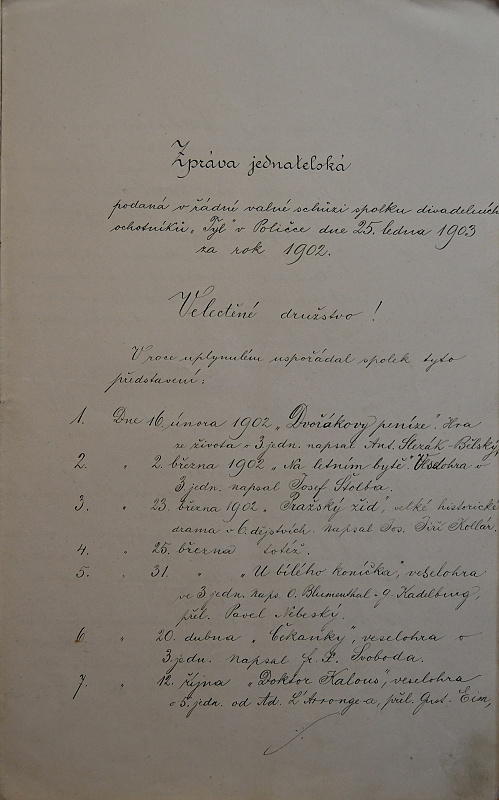 Zpráva jednatelská
podaná v řádné valné schůzi spolku divadelních
ochotníků „Tyl" v Poličce dne 25. ledna 1903
za rok 1902.
Velectěné družstvo!
V roce uplynulém uspořádal spolek tyto
představení:
1. Dne 16. února 1902 „Dvořákovy peníze". Hra
ze života o 3 jedn. napsal Ant. Slezák-Bělský,
2. „ 2. března 1902 „Na letním bytě". Veselohra o
3 jedn. napsal Josef Štolba.
3. „ 23. března 1902 „Pražský žid", velké historické
drama v 6. dějstvích. napsal Jos. Jiří Kollár.
4. „ 25. března totéž.
5. „ 31. „ „U bílého koníčka", veselohra
ve 3 jedn. naps. O. Blumenthal a G. Kadelburg,
přel. Pavel Nebeský.
6. „ 20. dubna „Čekanky", veselohra o
3. jedn. napsal F. X. Svoboda.
7. „ 12. října „Doktor Kalous", veselohra
o 5. jedn. od Ad. L'Arronge-a, přel. Gust. Eim,